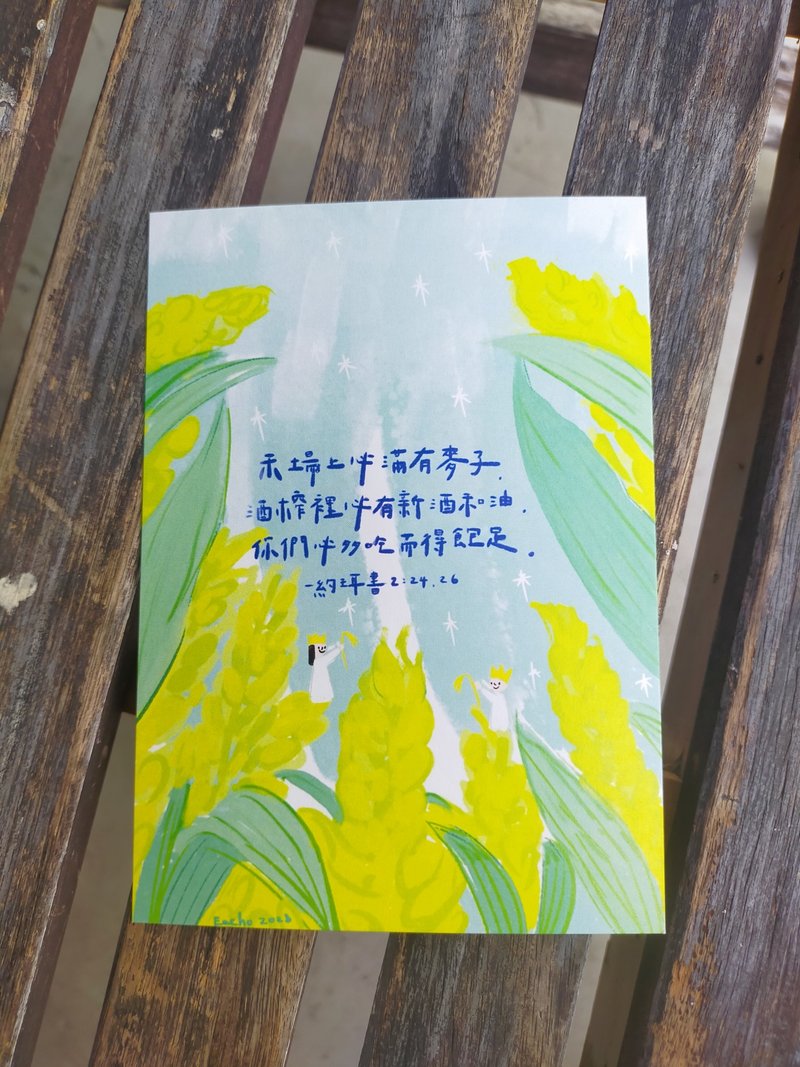 禾場上必滿有麥子,
酒榨裡必有新酒和油.
你們必多吃而得飽足.
—約珥書2:24.26
Eacho 2023